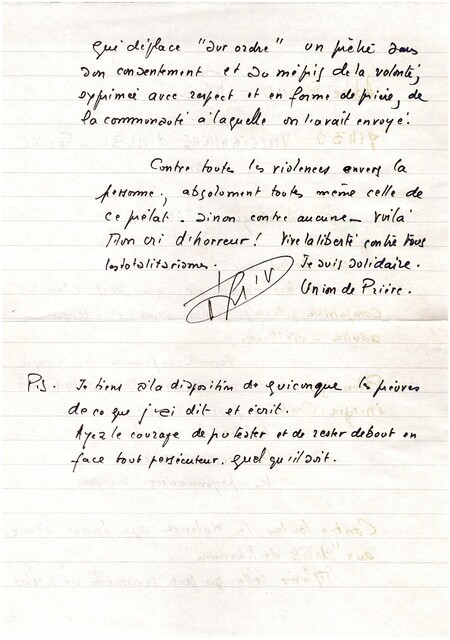 qui déplace "sur ordre" un prêtre sans
son consentement et au mépris de la volonté,
exprimée avec respect et en forme de prière, de
la communauté à laquelle on l'avait envoyé.
Contre toutes les violences envers la
personne, absolument toutes même celle de
ce prélat - sinon contre aucune - voilà
Mon cri d'horreur! Vive la liberté contre tous
les totalitarismes. Je suis solidaire.
Union de Prière.
P.S. Je tiens à la disposition de quiconque les preuves
de ce que j'ai dit et écrit.
Ayez le courage de protester et de rester debout en
face tout persécuteur. quel qu'il soit.